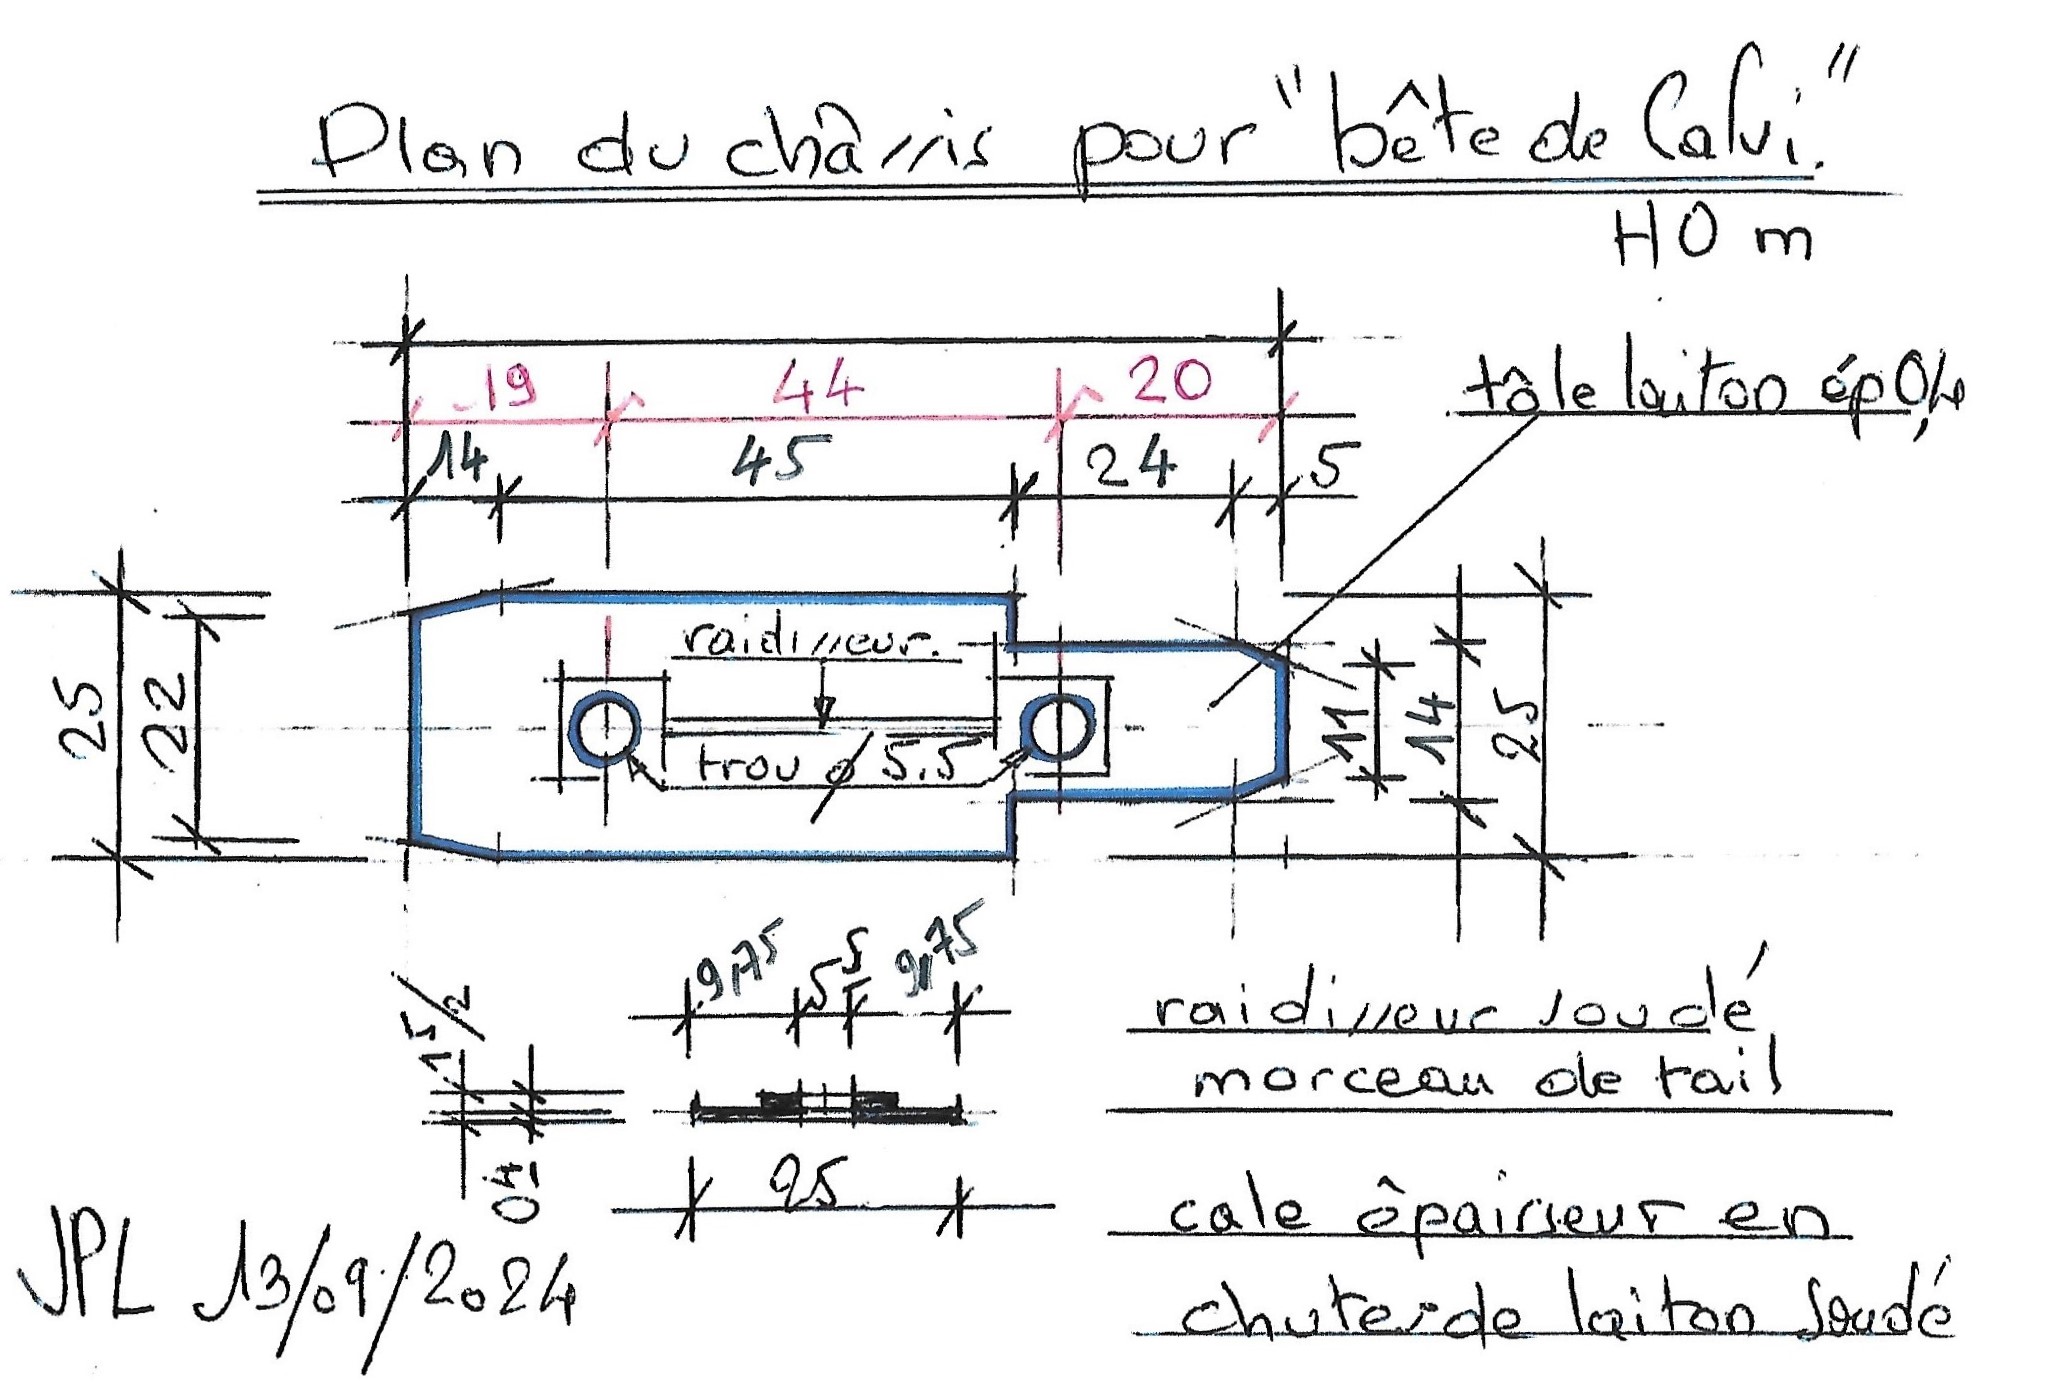 Plan du châssis pour "bête de Calvi."
HO m
19 44 20
tôle laiton ép 0,4
14 45 24 5
raidisseur.
25 22
11 14 25
trou ø 5.5
9,75 5,5 9,75
15/2
0,4
25
raidisseur soudé
morceau de rail
cale épaisseur en
chutes de laiton soudé
JPL 13/09/2024